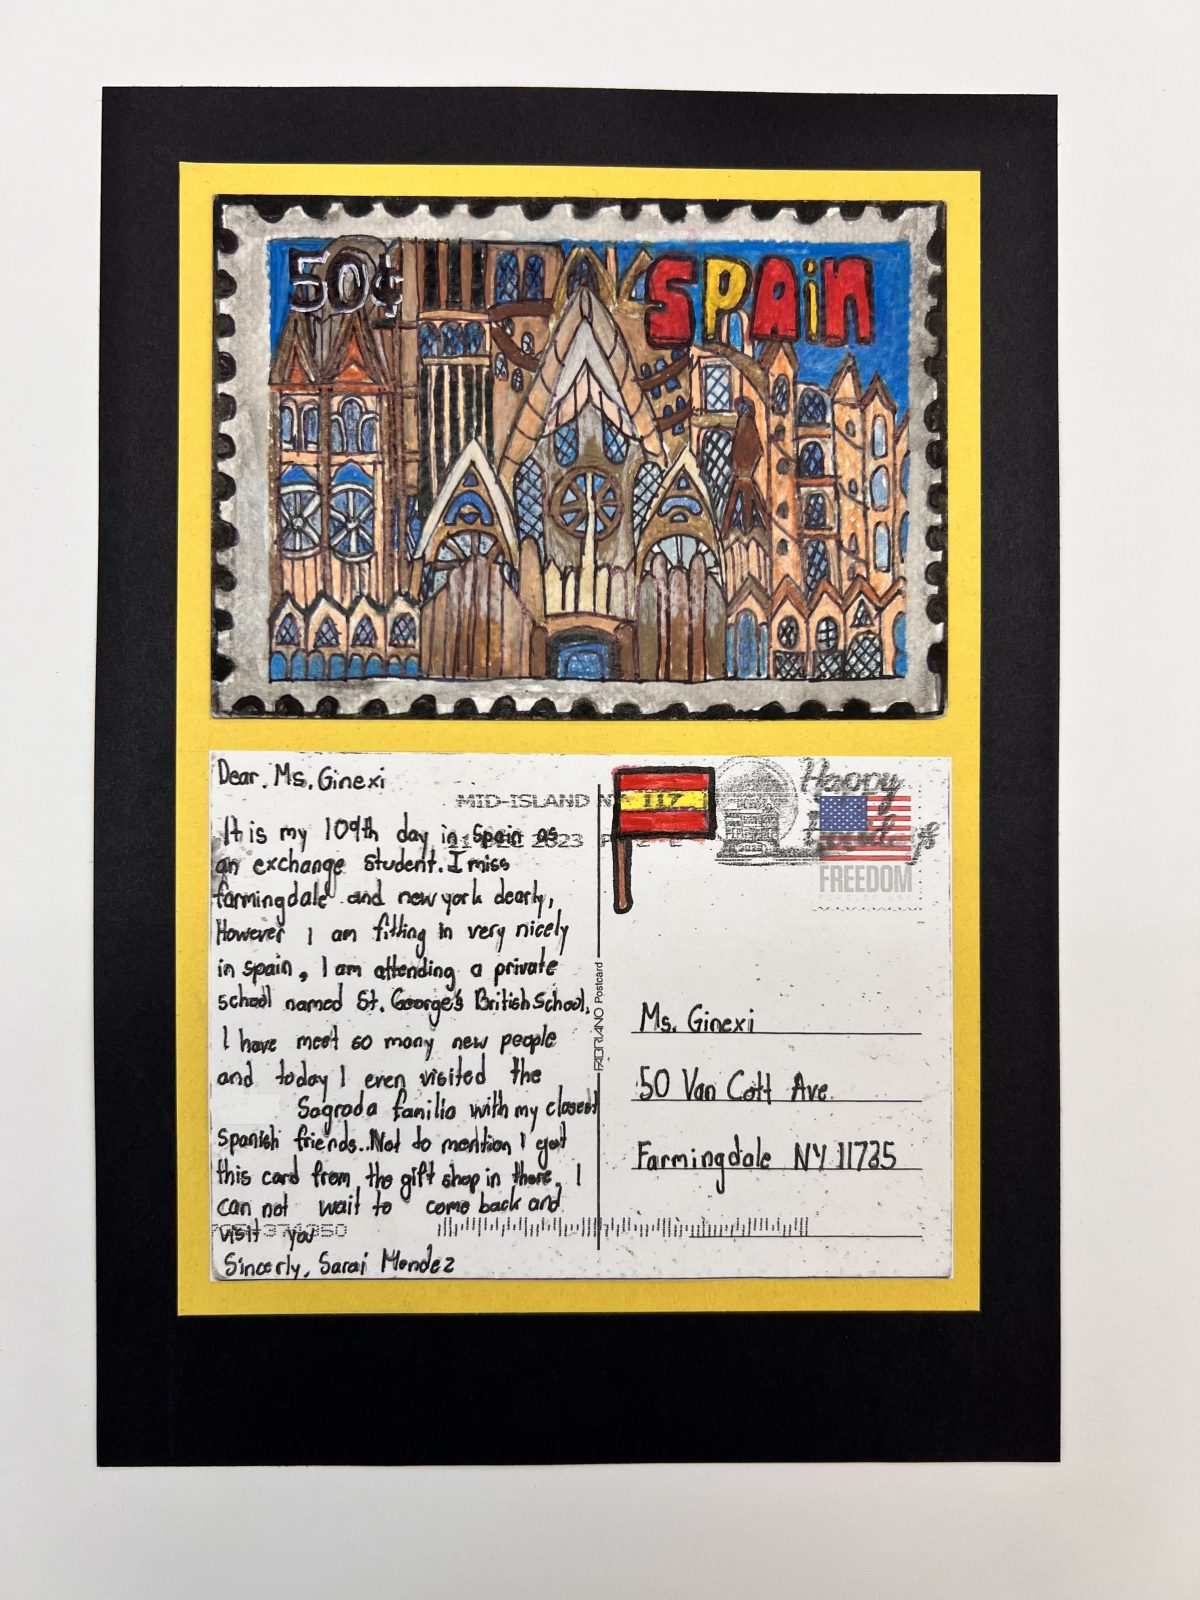 50¢
SPAiN
Dear. Ms. Ginexi
MID-ISLAND NY 117
It is my 109th day in Spain as
2023
an exchange student. I miss
farmingdale and new york dearly,
However i am fitting in very nicely
in spain, I am attending a private
school named St. George's British School,
I have meet so many new people
and today I even visited the
Sagrada familia with my closest
Spanish friends...Not to mention I got
this card from the gift shop in there, I
can not wait to come back and
visit you
Sincerly, Sarai Mendez
FABRIANO Postcard
Happy
FREEDOM
Ms. Ginexi
50 Van Cott Ave
Farmingdale NY 11735